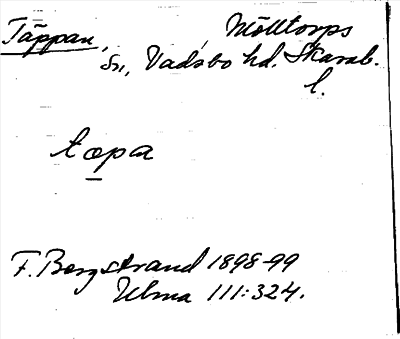 Täppan, Mölltorps
sn, Vadsbo hd. Skarab.
l.
tɷpa
F. Bergstrand 1898-99
Ulma 111:324.